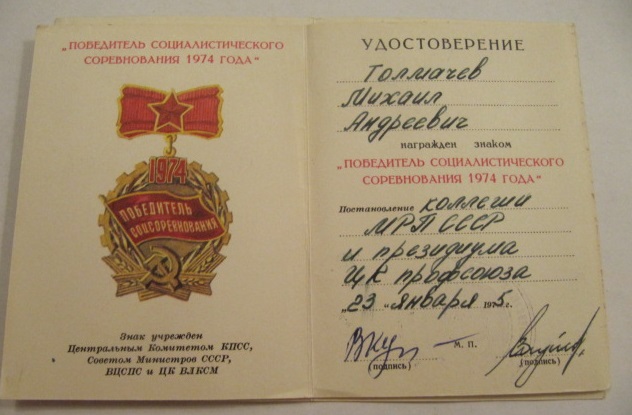 „ПОБЕДИТЕЛЬ СОЦИАЛИСТИЧЕСКОГО
СОРЕВНОВАНИЯ 1974 ГОДА"
1974
ПОБЕДИТЕЛЬ
СОЦСОРЕВНОВАНИЯ
Знак учрежден
Центральным Комитетом КПСС,
Советом Министров СССР,
ВЦСПС и ЦК ВЛКСМ
УДОСТОВЕРЕНИЕ
Толмачев
Михаил
Андреевич
награжден знаком
„ПОБЕДИТЕЛЬ СОЦИАЛИСТИЧЕСКОГО
СОРЕВНОВАНИЯ 1974 ГОДА"
Постановление коллегии
МРП СССР
и президиума
ЦК профсоюза
„23" января 1975 г.
М. П.
(подпись) (подпись)